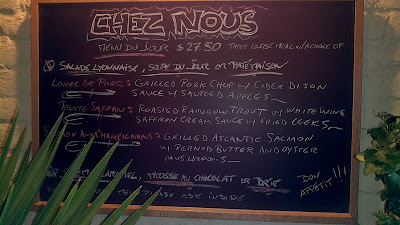 CHEZ NOUS
MENU DU JOUR $27.50 THREE COURSE MEAL W/ A CHOICE OF
SALADE LYONNAISE, SOUPE DU JOUR OR PATE MAISON
LONGE DE PORC: GRILLED PORK CHOP W/ CIDER DIJON
SAUCE W/ SAUTEED APPLES
TRUITE SAFRAN: ROASTED RAINBOW TROUT W/ WHITE WINE
SAFFRON CREAM SAUCE W/ FRIED LEEKS
AUX CHAMPIGNONS: GRILLED ATLANTIC SALMON
W/ PERNOD BUTTER AND OYSTER
MUSHROOMS
MOUSSE AU CHOCOLAT OR
ASK INSIDE
BON APPETIT!!!